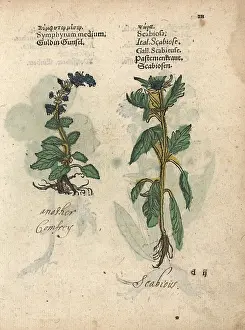 Symphytum medium,
Guldin Gunsel.
Scabiosa;
Ital. Scabiose.
Gall. Scabieuse.
Pastemenkraut,
Scabiosen.
another
Comfrey
Scabious.
d ij